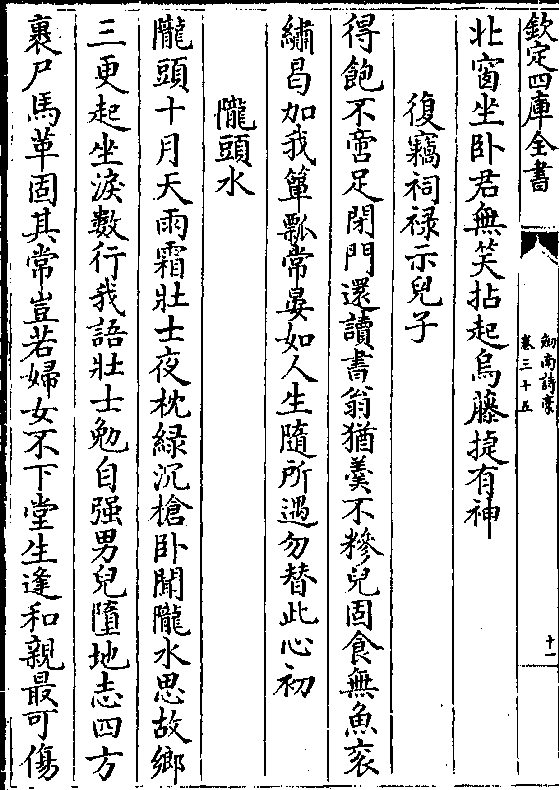 欽定四庫全書
劒南詩稾
卷三十五
十一
北窗坐卧君無笑拈起烏藤捷有神
復竊祠禄示兒子
得飽不啻足閉門還讀書翁猶羹不糝兒固食無魚衮
繡曷加我簞瓢常晏如人生隨所遇勿替此心初
隴頭水
隴頭十月天雨霜壯士夜枕緑沉槍卧聞隴水思故鄉
三更起坐淚數行我語壯士勉自强男兒墮地志四方
裹尸馬革固其常豈若婦女不下堂生逢和親最可傷